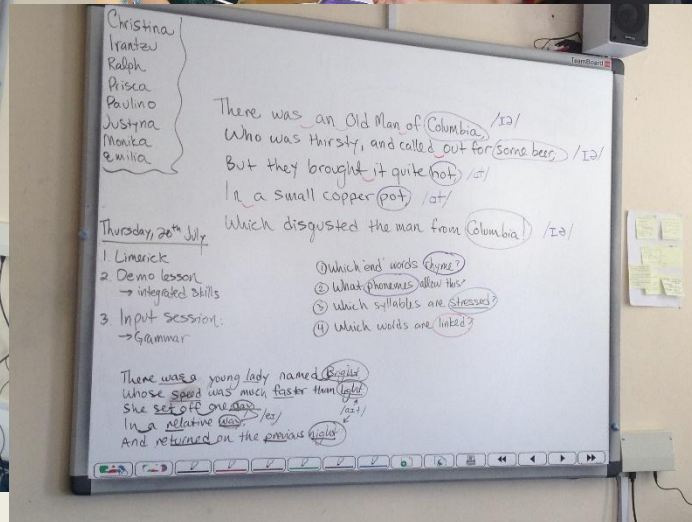 Christina
Irantzu
Ralph
Prisca
Paulino
Justyna
Monika
Emilia
TeamBoard
There was an Old Man of Columbia, /ɪə/
Who was thirsty, and called out for some beer, /ɪə/
But they brought it quite hot,
In a small copper pot,
Which disgusted the man from Columbia! /ɪə/
Thursday, 20th July
1. Limerick
2. Demo lesson
→ integrated skills
3. Input session:
→ Grammar
① Which 'end' words rhyme?
② What phonemes allow this?
③ Which syllables are stressed?
④ Which words are linked?
There was a young lady named Bright
Whose speed was much faster than light
She set off one day /eɪ/
In a relative way. /aɪt/
And returned on the previous night